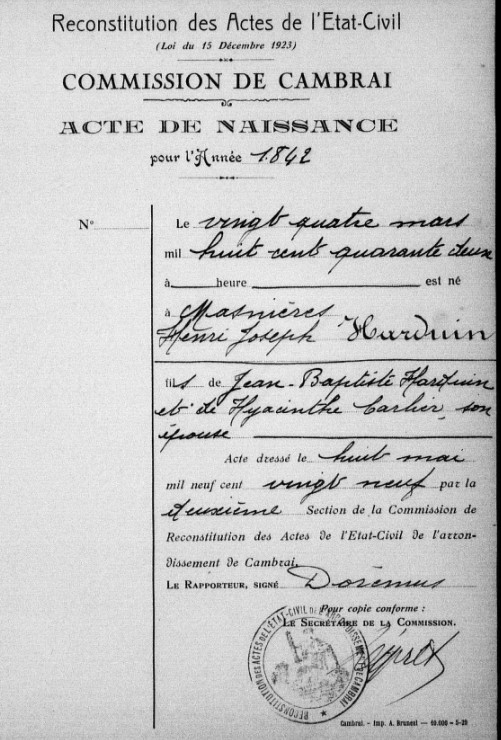 Reconstitution des Actes de l'Etat-Civil
(Loi du 15 Décembre 1923)
COMMISSION DE CAMBRAI
ACTE DE NAISSANCE
pour l'Année 1842
N°
Le vingt quatre mars
mil huit cent quarante deux
à heure est né
à Masnières
Henri Joseph Harduin
fils de Jean-Baptiste Harduin
et de Hyacinthe Carlier, son
épouse
Acte dressé le huit mai
mil neuf cent vingt neuf par la
deuxième Section de la Commission de
Reconstitution des Actes de l'Etat-Civil de l'arron-
dissement de Cambrai.
LE RAPPORTEUR, SIGNÉ Dorémus
Pour copie conforme :
LE SECRÉTAIRE DE LA COMMISSION.
RECONSTITUTION DES ACTES DE L'ETAT-CIVIL DE L'ARRONDISSEMENT DE CAMBRAI
Cambrai. - Imp. A. Brunent — 60.000 - 5-29